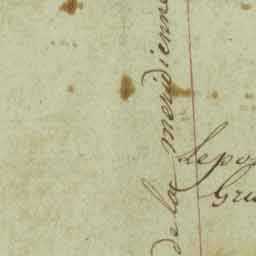 de la meridienne
Lepo
Gru